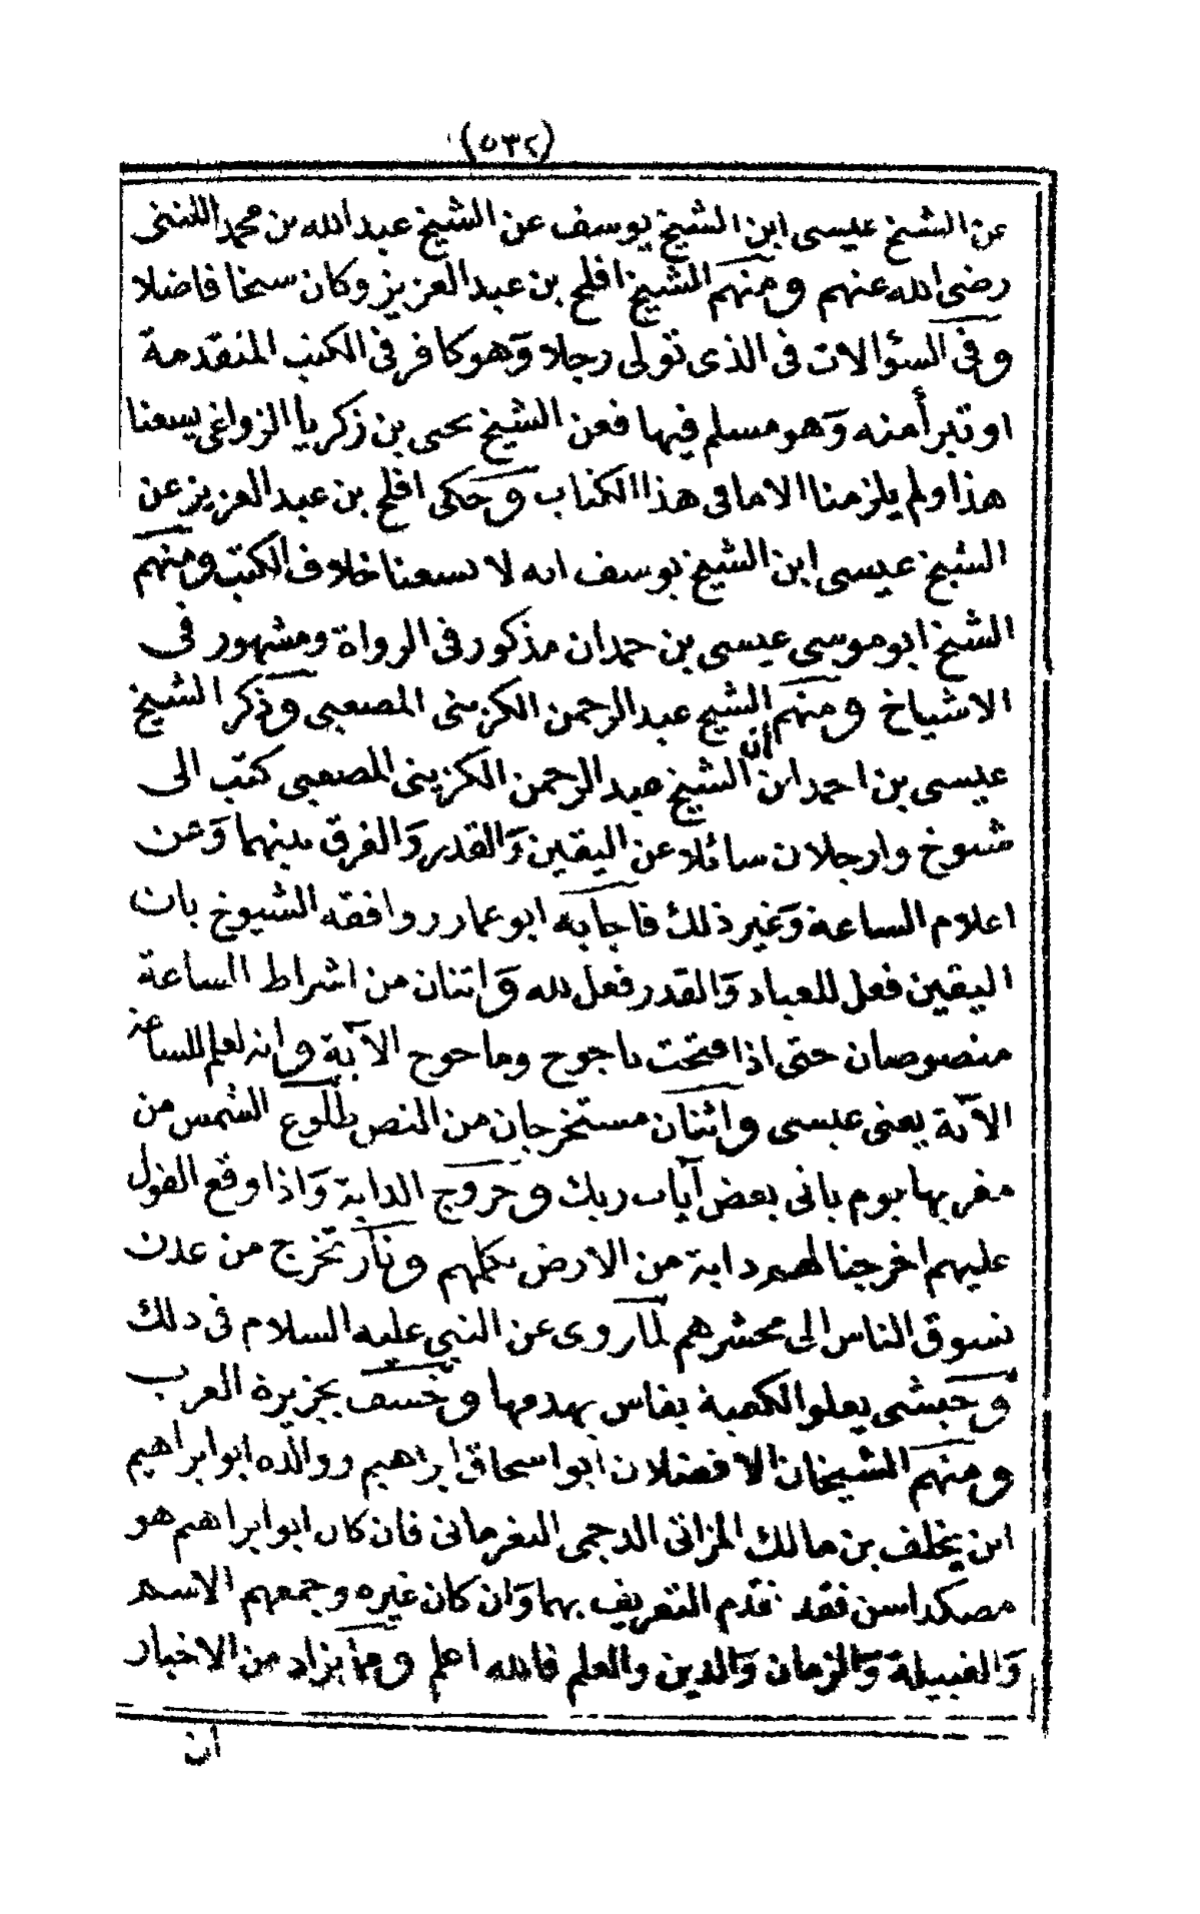 (٥٣٢)
عن الشيخ عيسى ابن الشيخ يوسف عن الشيخ عبد الله بن محمد اللنتى
رضى الله عنهم ومنهم الشيخ افلح بن عبد العزيز وكان سخا فاضلا
وفى السؤالات فى الذى تولى رجلا وهو كافر فى الكتب المتقدمة
او تبرأ منه وهو مسلم فيها فعن الشيخ يحيى بن زكرياا الزواغى يسعنا
هذا ولم يلزمنا الا ما فى هذا الكتاب وحكى افلح بن عبد العزيز عن
الشيخ عيسى ابن الشيخ يوسف انه لا يسعنا خلاف الكتب ومنهم
الشيخ ابو موسى عيسى بن حمدان مذكور فى الرواة ومشهور فى
الاشياخ ومنهم الشيخ عبد الرحمن الكزينى المصعبى وذكر الشيخ
عيسى بن احمد ابن أن الشيخ عبد الرحمن الكزينى المصعبى كتب الى
شيوخ وارجلان سائلا عن اليقين وَالقدر وَالفرق بينهما وَعن
اعلام الساعة وَغير ذلك فاجابه ابو عمار ووافقه الشيوخ بان
اليقين فعل للعباد وَالقدر فعل لله واثنان من اشراط الساعة
منصوصان حتى اذا فتحت ياجوج وماجوج الآية وانه لعلم للساعة
الآية يعنى عيسى واثنان مستخرجان من النص طلوع الشمس من
مغربها يوم ياتى بعض آيات ربك وخروج الدابة وَاذا وقع القول
عليهم اخرجنا لهم دابة من الارض تكلمهم ونار تخرج من عدن
تسوق الناس الى محشرهم لما روى عن النبى عليه السلام فى ذلك
وحبشى يعلو الكعبة بفاس يهدمها وخسف بجزيرة العرب
ومنهم الشيخان الافضلان ابو اسحاق ابراهيم ووالده ابو ابراهيم
ابن يخلف بن مالك المزاتى الدجمى النفرمانى فان كان ابو ابراهيم هو
مصكداسن فقد تقدم التعريف بهما وَان كان غيره وجمعهم الاسم
وَالقبيلة وَالزمان وَالدين والعلم فالله اعلم ومما يزاد من الاخبار
ان